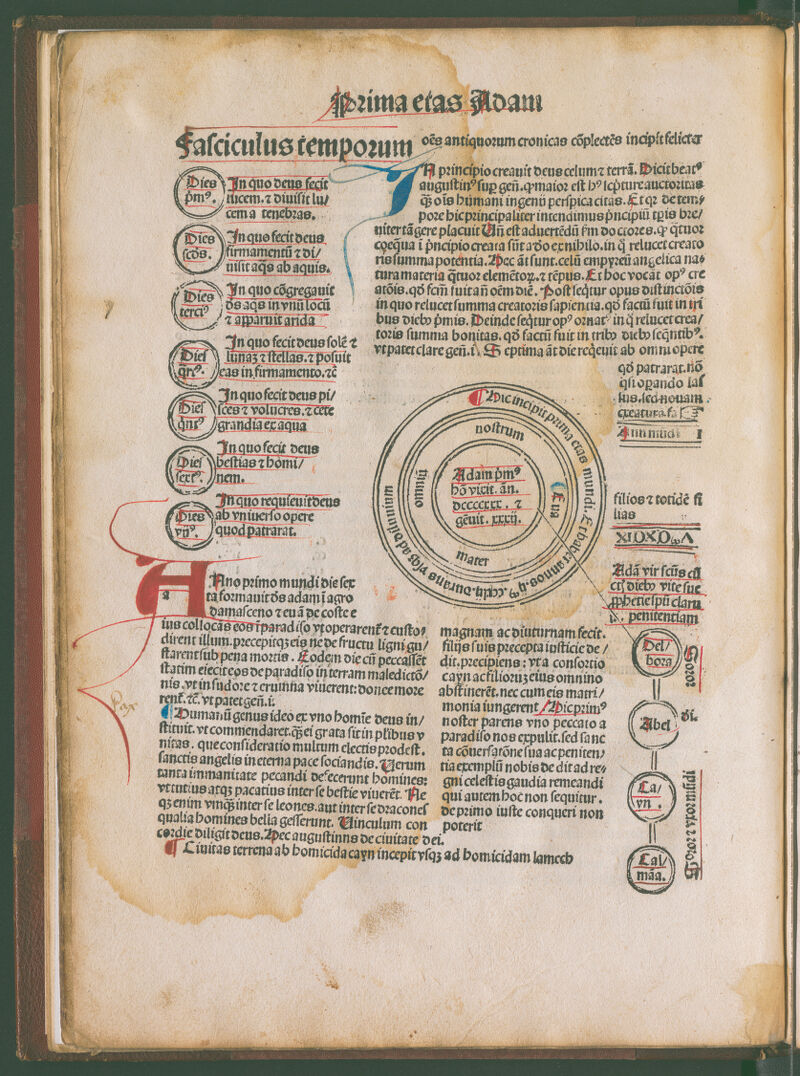 Prima etas Adam
Fasciculus temporum
oẽs antiquorum cronicas cõplectẽs incipit felicit̃
Dies
p̃m⁹.
In quo deus fecit
lucem. ⁊ diuisit lu/
cem a tenebras.
Dies
scđs.
In quo fecit deus
firmamentũ ⁊ di/
uisit aq̃s ab aquis.
Dies
terci⁹
In quo cõgregauit
đs aq̃s in vnũ locũ
⁊ apparuit arida
Dies
q̃rt⁹.
In quo fecit deus solẽ ⁊
lunaʒ ⁊ stellas. ⁊ posuit
eas in firmamento. ⁊c̃
Dies
q̃nt⁹
In quo fecit deus pi/
sces ⁊ volucres. ⁊ cete
grandia ex aqua
Dies
sext⁹.
In quo fecit deus
bestias ⁊ homi/
nem.
Dies
vij⁹.
In quo requieuit deus
ab vniuerso opere
quod patrarat.
IN principio creauit deus celum ⁊ terrã. Dicit beat⁹
augustin⁹ suꝑ geñ. ꝙ maior est h⁹ scp̃ture auctoritas
q̃ʒ oĩs humani ingenij perspicacitas. Et qꝛ de tem/
pore hic principaliter intendimus p̃ncipiũ tp̃is bre/
niter tãgere placuit Uñ est aduertẽdũ ẜm doctores. ꝙ q̃tuor
coequa i p̃ncipio creata sũt a đo ex nihilo. in q̃ relucet creato
ris summa potentia. Hec ãt sunt. celũ empyreũ angelica na/
tura materia q̃tuor elemẽtoꝝ. ⁊ tẽpus. Et hoc vocat̃ op⁹ cre
atõis. qđ fcm̃ fuit añ oẽm diẽ. Post seq̃tur opus distinctiõis
in quo relucet summa creatoris sapiencia. qđ factũ fuit in tri
bus dieb⁹ p̃mis. Deinde seq̃tur op⁹ ornat⁹ in q̃ relucet crea/
toris summa bonitas. qđ factũ fuit in trib⁹ dieb⁹ seq̃ntib⁹.
vt patet clare geñ. i. Septima ãt die req̃euit ab omni opere
qđ patrarat. nõ
q̃si opando las
sus. sed nouam
creaturã
Anni mũdi I
Hic incipit prima etas mundi. Et habet annos
durans vsq̃ ad diluuium
nostrum
omniũ
mater
Eua
Adam p̃m⁹
hõ vixit. ãn.
dccccxxx. ⁊
gẽuit. xxxij.
filios ⁊ totidẽ fi
lias
Adã vir scũs cũ
ctĩ dieb⁹ vite sue
ꝓphetie spũ clarũ
penitentiam
Del/
bora
vxor
Abel
Ca/
yn.
Cal/
mãa.
Anno primo mundi die sex
ta formauit đs adam ĩ agro
damasceno ⁊ euã de coste e
ius collocãs eos ĩ paradiso vt operarent̃ ⁊ custo/
dirent illum. precepitqʒ eis ne de fructu ligni gu/
starent sub pena mortis. Eodem die cũ peccasset
statim eiecit eos de paradiso in terram maledictõ/
nis. vt in sudore ⁊ erumna viuerent: donec more
rent̃. ⁊c̃. vt patet geñ. i.
Humanũ genus ideo ex vno homĩe deus in/
stituit. vt commendaret. q̃ʒ ei grata sit in pl̃ibus v
nitas. que consideratio multum electis prodest.
sanctis angelis in eterna pace sociandis. Uerum
tanta immanitate pecandi defecerunt homines:
vt tutius atqʒ pacatius inter se bestie viuerẽt. Ne
qʒ enim vnqʒ̃ inter se leones. aut inter se dracones
qualia homines belia gesserunt. Uinculum con
cordie diligit deus. Hec augustinus de ciuitate dei.
Ciuitas terrena ab homicida cayn incepit vsqʒ ad homicidam lamech
magnam ac diuturnam fecit.
filijs suis precepta iusticie de/
dit. precipiens: vt a consortio
cayn ac filiorum eius omnino
abstinerẽt. nec cum eis matri/
monia iungerent Hic prim⁹
noster parens vno peccato a
paradiso nos expulit. sed sanc
ta cõuersatõne sua ac peniten/
tia exemplũ nobis dedit ad re/
gni celestis gaudia remeandi
qui autem hoc non sequitur.
de primo iuste conqueri non
poterit